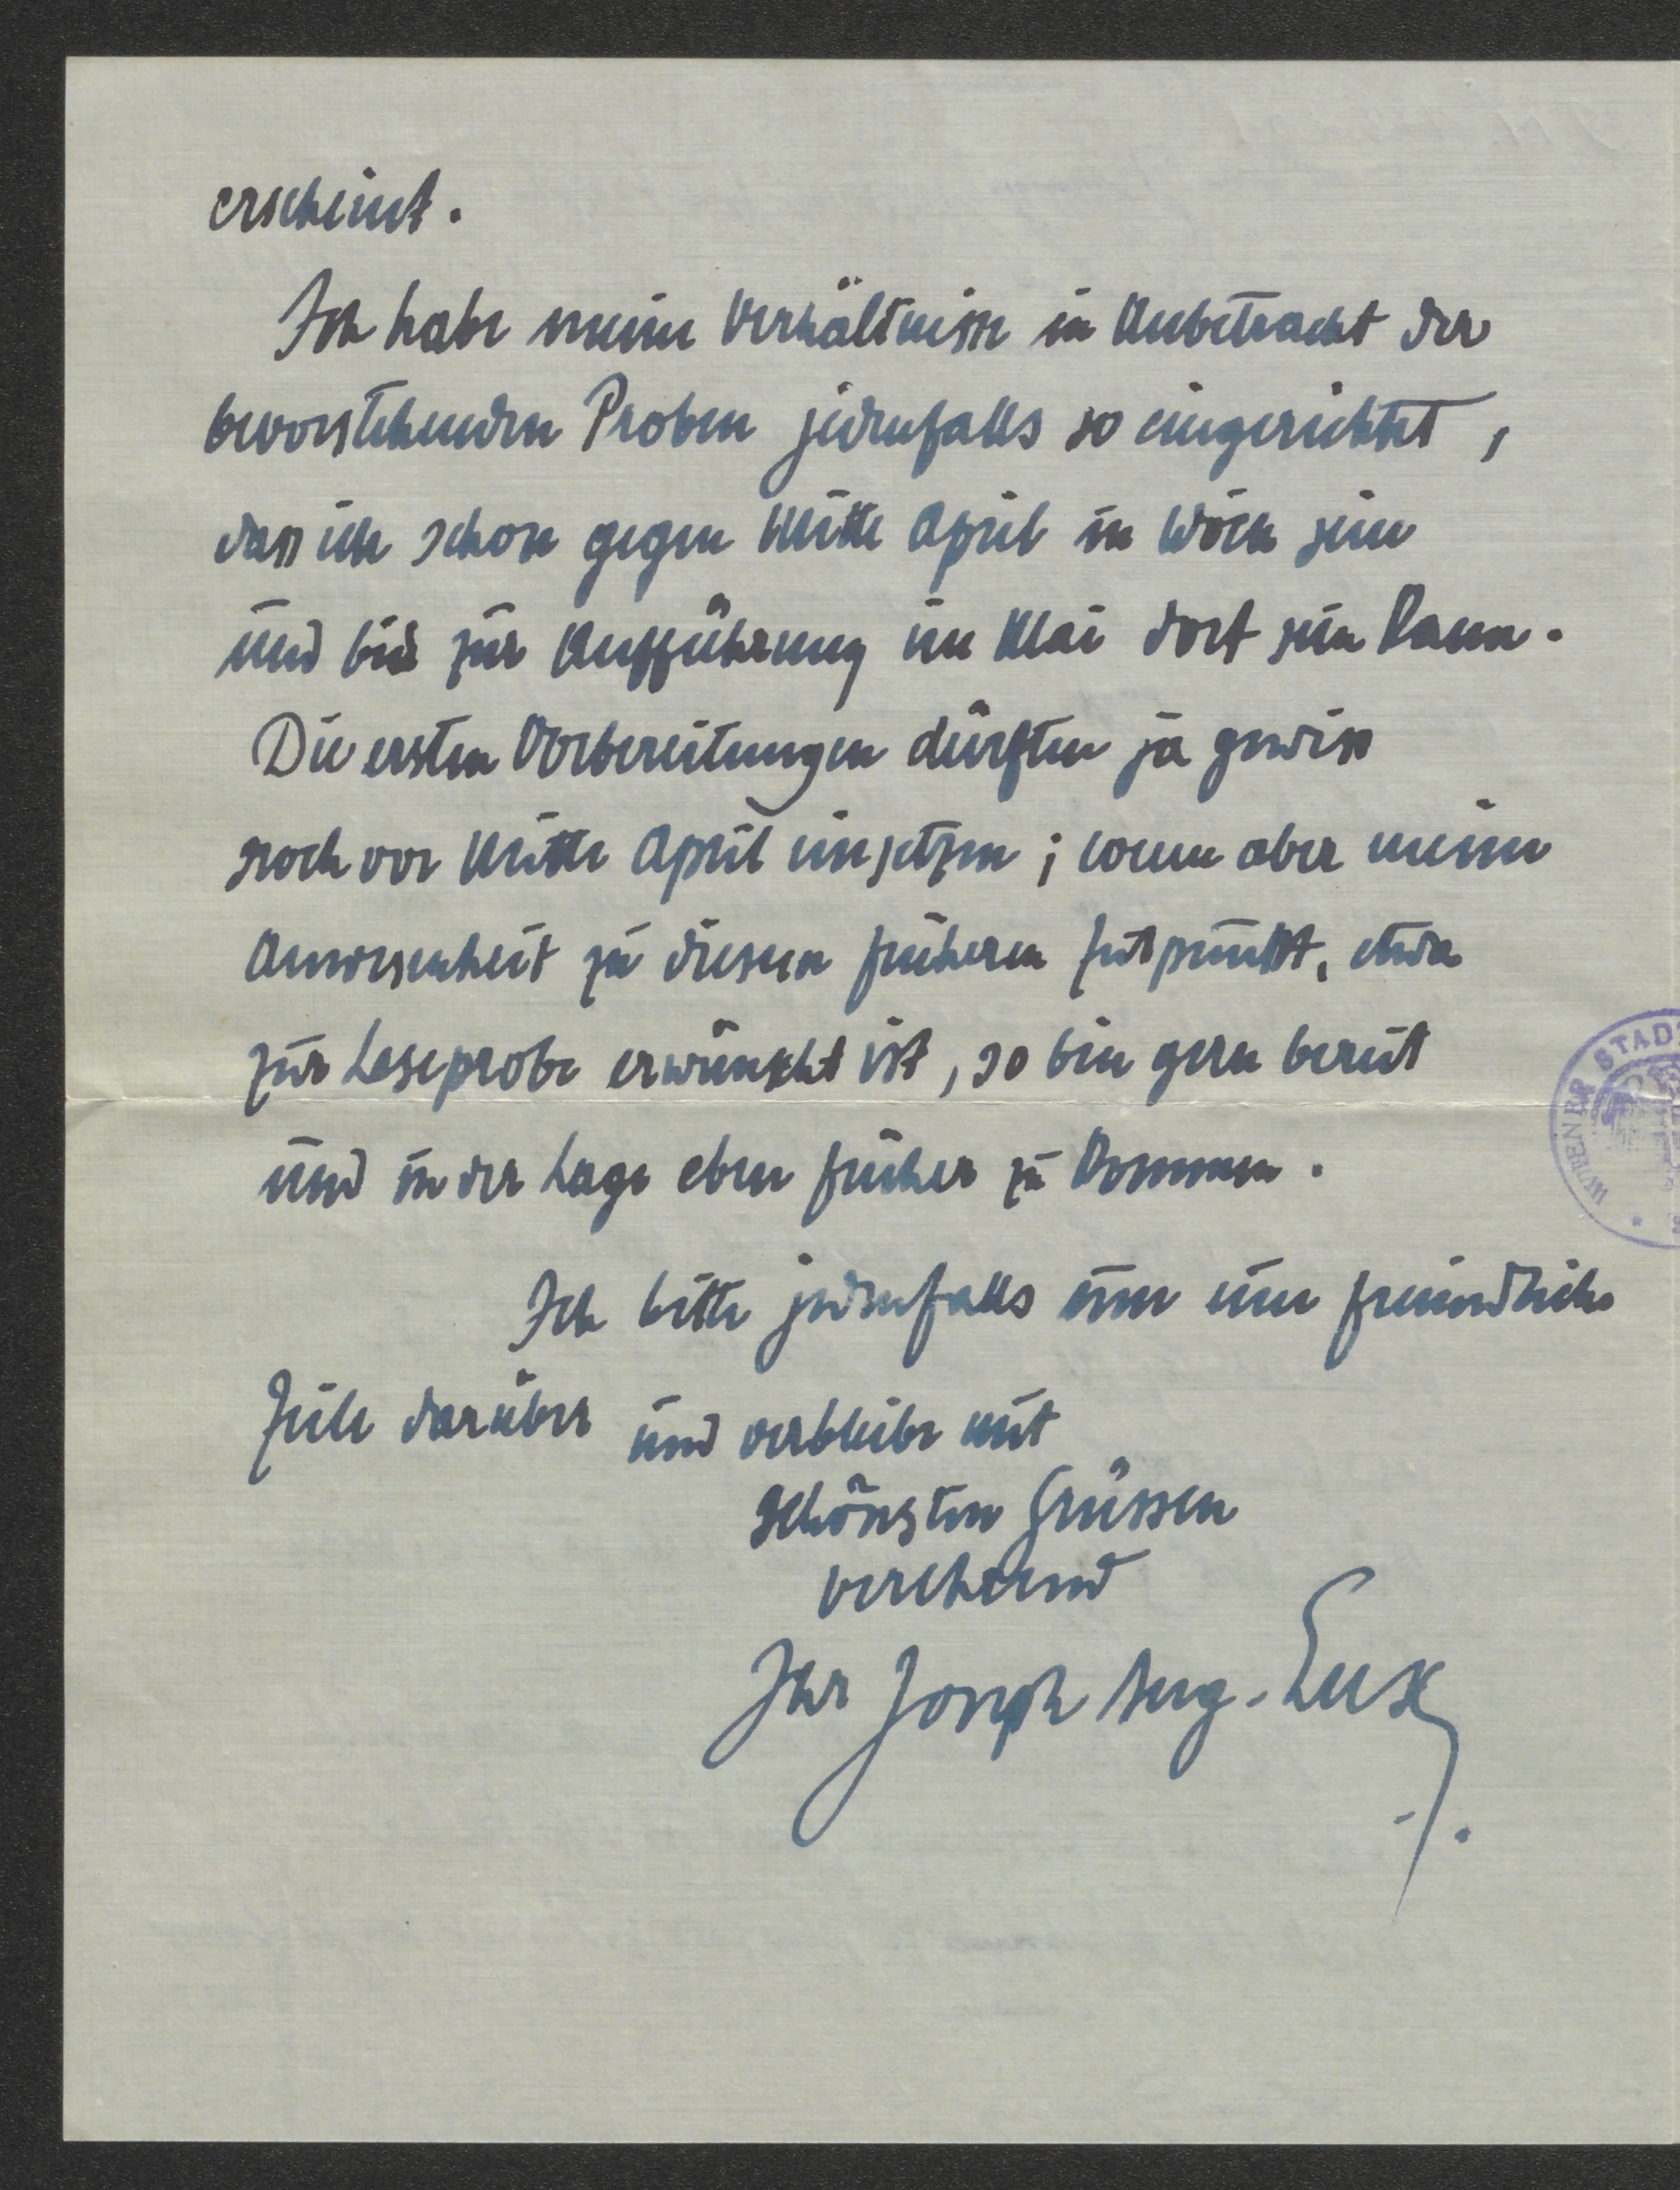 erscheint.
Ich habe meine Verhältnisse in Anbetracht der
bevorstehenden Proben jedenfalls so eingerichtet,
dass ich schon gegen Mitte April in Wien sein
und bis zur Aufführung im Mai dort sein kann.
Die ersten Vorbereitungen dürften ja gewiss
noch vor Mitte April einsetzen; wenn aber meine
Anwesenheit zu diesem früheren Zeitpunkt, etwa
zur Leseprobe erwünscht ist, so bin gern bereit
und in der Lage eben früher zu kommen.
WIENER STAD
Ich bitte jedenfalls um eine freundliche
Zeile darüber und verbleibe mit
schönsten Grüssen
verehrend
Ihr Joseph Aug. Lux